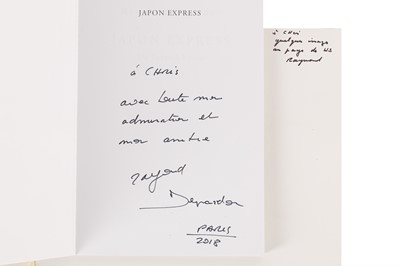 JAPON EXPRESS
à CHRIS
avec toute mon
admiration et
mon amitié
Raymond
Depardon
PARIS
2018
à CHRIS
quelques images
au pays de
Raymond